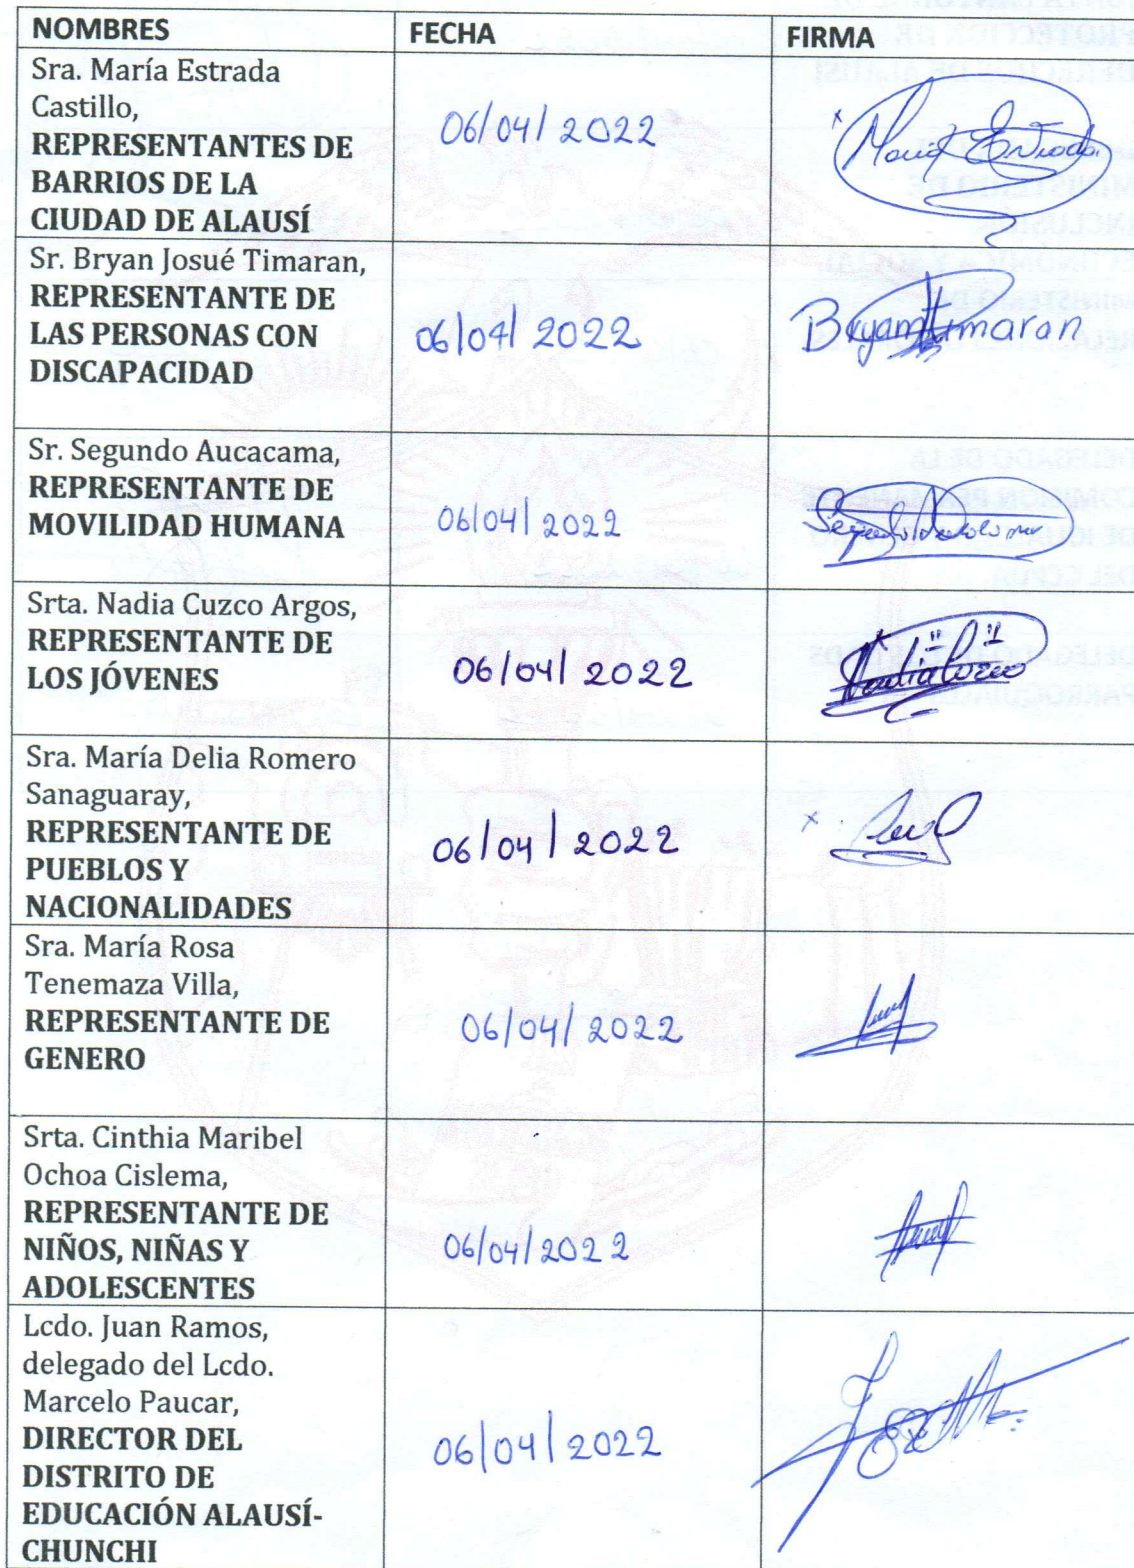 NOMBRES FECHA FIRMA
Sra. María Estrada
Castillo,
REPRESENTANTES DE
BARRIOS DE LA
CIUDAD DE ALAUSÍ
06/04/2022
María Estrada
Sr. Bryan Josué Timaran,
REPRESENTANTE DE
LAS PERSONAS CON
DISCAPACIDAD
06/04/2022
Bryan Timaran
Sr. Segundo Aucacama,
REPRESENTANTE DE
MOVILIDAD HUMANA
06/04/2022
Srta. Nadia Cuzco Argos,
REPRESENTANTE DE
LOS JÓVENES
06/04/2022
Nadia Cuzco
Sra. María Delia Romero
Sanaguaray,
REPRESENTANTE DE
PUEBLOS Y
NACIONALIDADES
06/04/2022
Sra. María Rosa
Tenemaza Villa,
REPRESENTANTE DE
GENERO
06/04/2022
Srta. Cinthia Maribel
Ochoa Cislema,
REPRESENTANTE DE
NIÑOS, NIÑAS Y
ADOLESCENTES
06/04/2022
Lcdo. Juan Ramos,
delegado del Lcdo.
Marcelo Paucar,
DIRECTOR DEL
DISTRITO DE
EDUCACIÓN ALAUSÍ-
CHUNCHI
06/04/2022